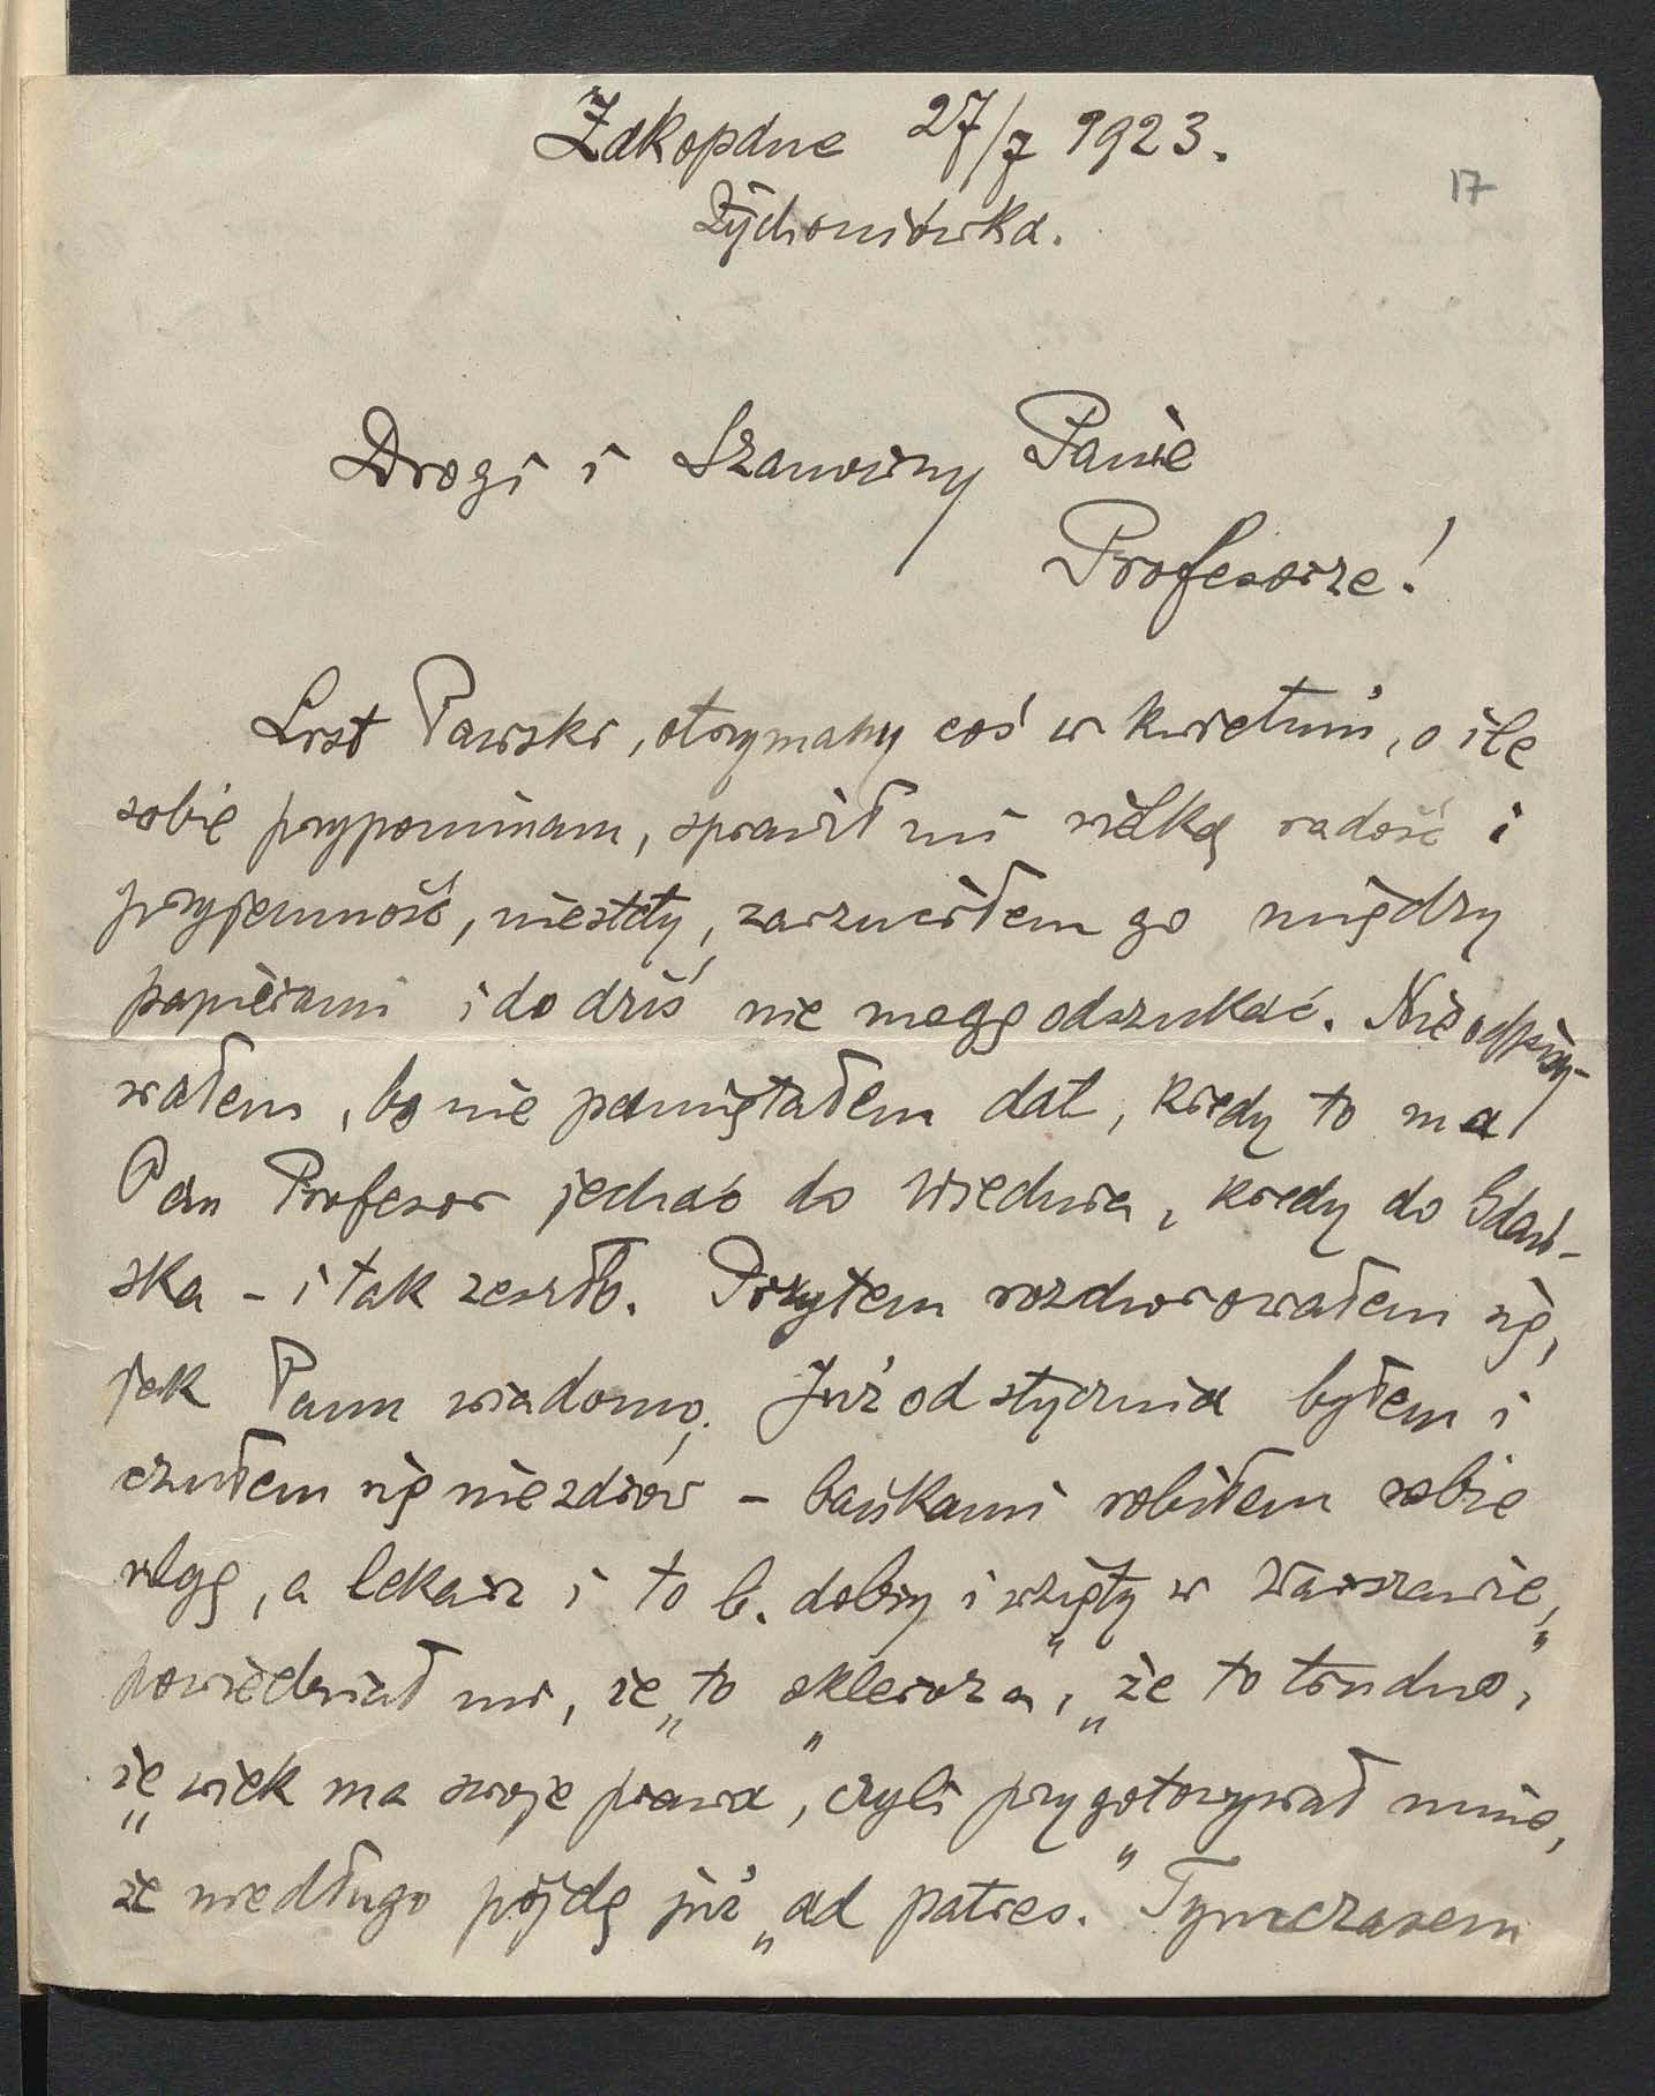 Zakopane 27/7 1923.
17
Żychoniówka.
Drogi i Szanowny Panie
Profesorze!
List Pański, otrzymany coś w kwietniu, o ile
sobie przypominam, sprawił mi wielką radość i
przyjemność, niestety, zarzuciłem go między
papierami i do dziś nie mogę odszukać. Nie odpisy-
wałem, bo nie pamiętałem dat, kiedy to ma
Pan Profesor jechać do Wiednia, kiedy do Gdań-
ska - i tak zeszło. Przytem rozchorowałem się,
jak Panu wiadomo. Już od stycznia byłem i
czułem się niezdrów - bańkami robiłem sobie
ulgę, a lekarz i to b. dobry i „wzięty w Warszawie”,
powiedział mi, że „to skleroza”, „że to trudno”,
że „wiek ma swoje prawa”, czyli przygotowywał mnie,
że niedługo pójdę już „ad patres.” Tymczasem